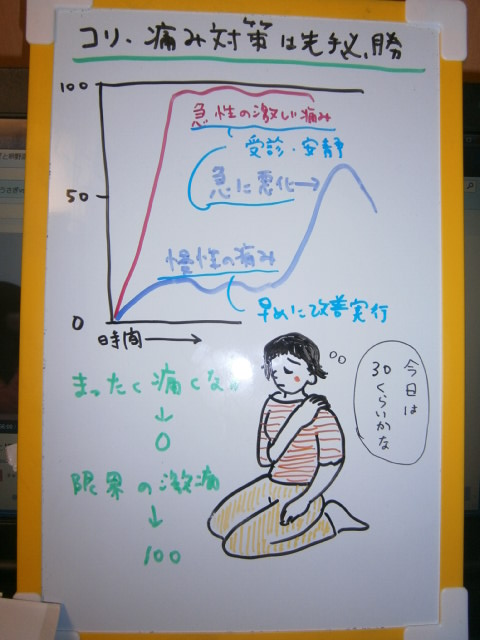 コリ、痛み対策は先手必勝
100
急性の激しい痛み
受診・安静
急に悪化→
50
慢性の痛み
早めに改善実行
0
時間→
今日は
30くらいかな
まったく痛くな
↓
0
限界の激痛
↓
100